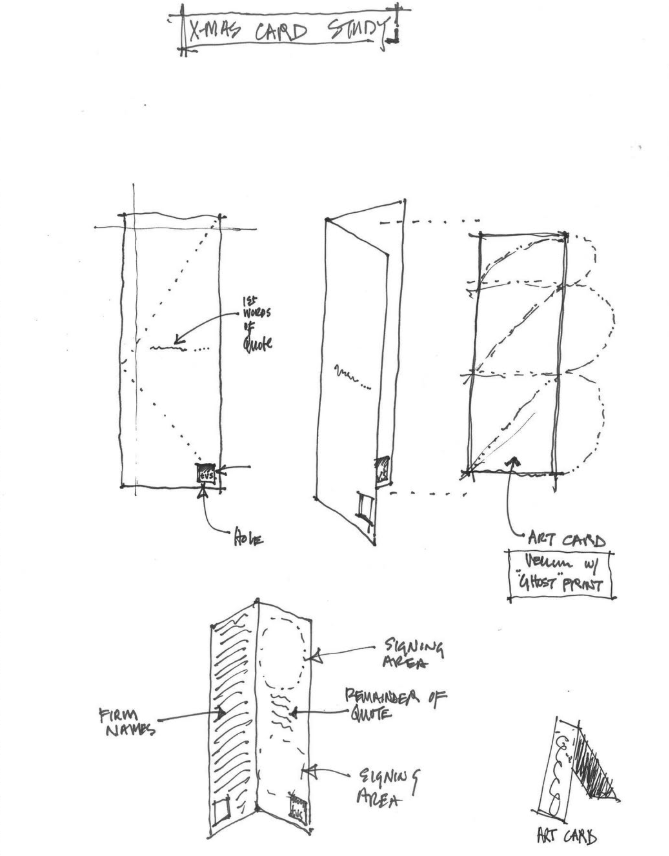 X-MAS CARD STUDY
1ST
WORDS
OF
QUOTE
HOLE
ART CARD
VELLUM W/
"GHOST" PRINT
SIGNING
AREA
FIRM
NAMES
REMAINDER OF
QUOTE
SIGNING
AREA
ART CARD